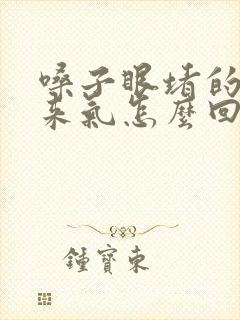 嗓子眼堵的
来气怎麼回
鍾寶東